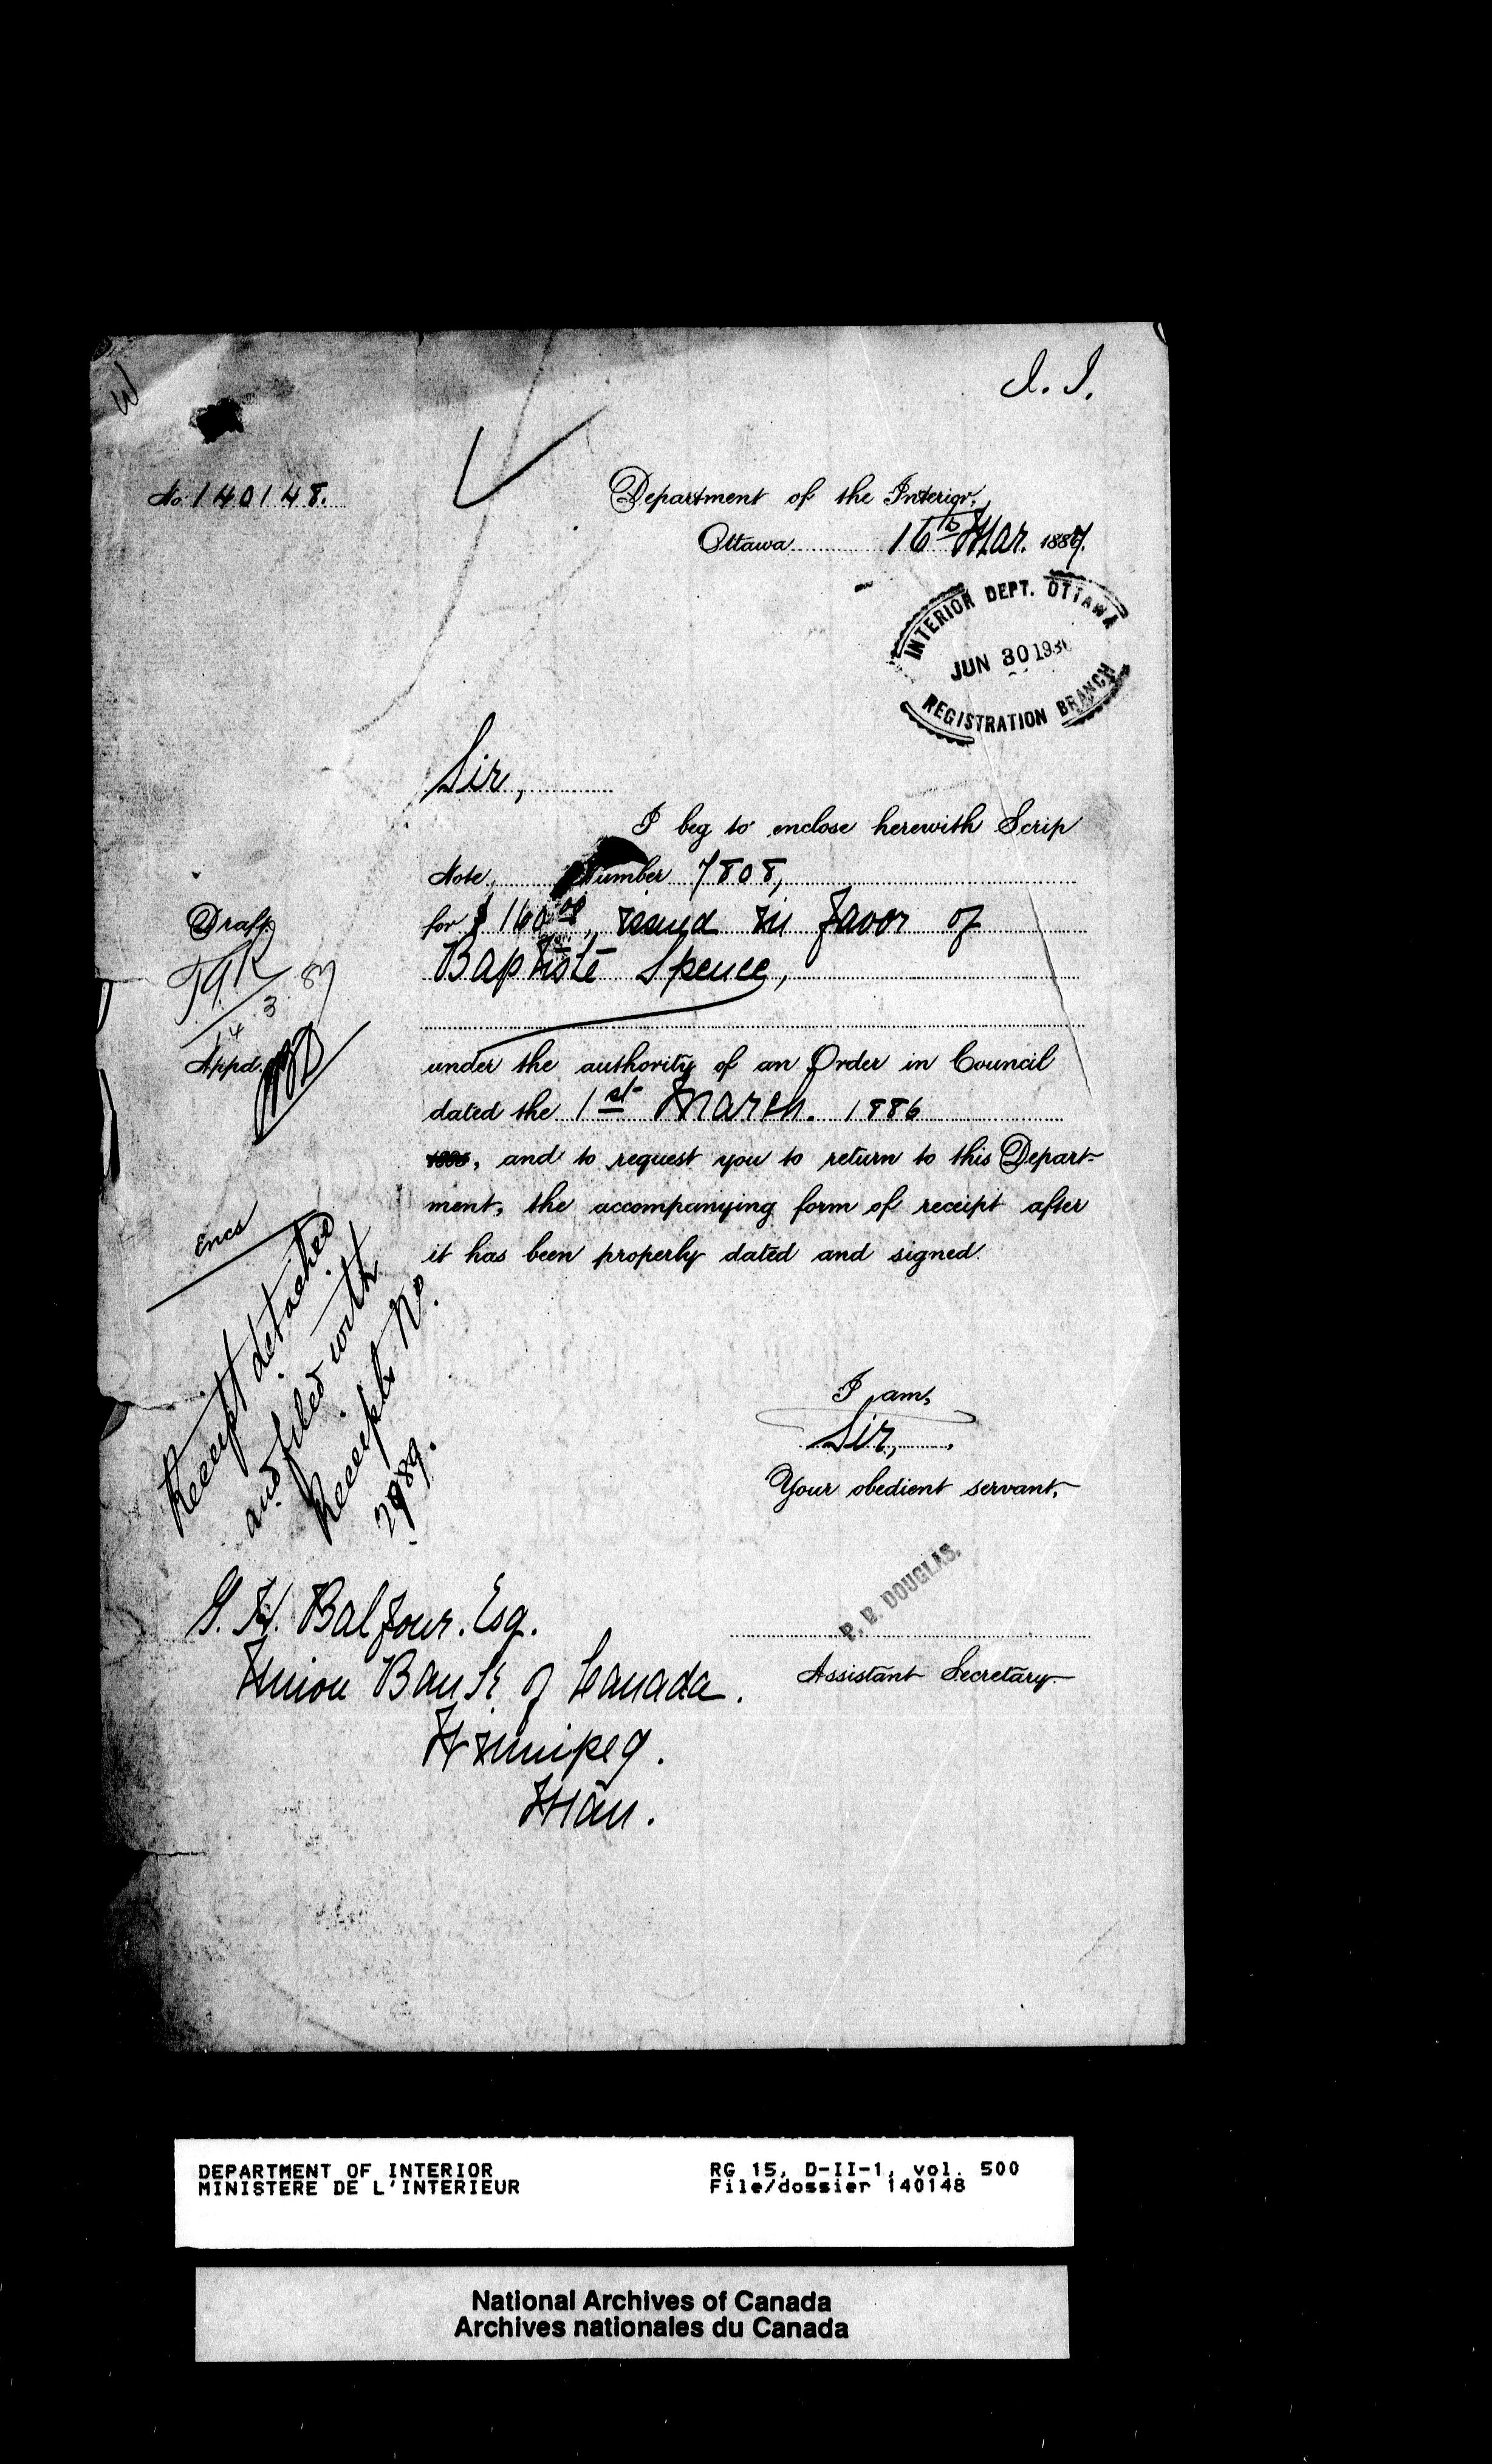 I. I.
No. 140148.
Department of the Interior,
Ottawa 16th Mar. 1887.
INTERIOR DEPT. OTTAWA
JUN 30 193
REGISTRATION BRANCH
Sir,
I beg to enclose herewith Scrip
Note, Number 7808,
for $160.00, issued in favor of
Baptiste Spence,
under the authority of an Order in Council
dated the 1st March. 1886
, and to request you to return to this Depart-
ment, the accompanying form of receipt after
it has been properly dated and signed.
Draft
14.3.87
Appd.
Encs
Receipt detached
and filed with
Receipts No.
2989.
I am,
Sir,
Your obedient servant,
P. B. DOUGLAS.
Assistant Secretary.
G. H. Balfour. Esq.
Union Bank of Canada.
Winnipeg.
Man.
DEPARTMENT OF INTERIOR
MINISTERE DE L'INTERIEUR
RG 15, D-II-1, vol. 500
File/dossier 140148
National Archives of Canada
Archives nationales du Canada